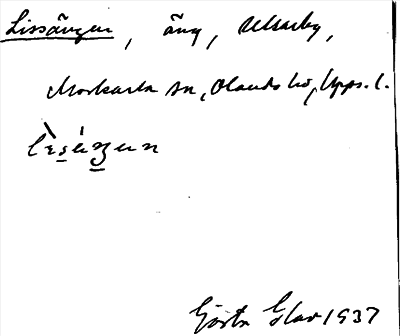 Lissängen, äng, Ulkarby,
Morkarla sn, Olands hd, Upps. l.
lèsáŋen
Gösta Glav 1937